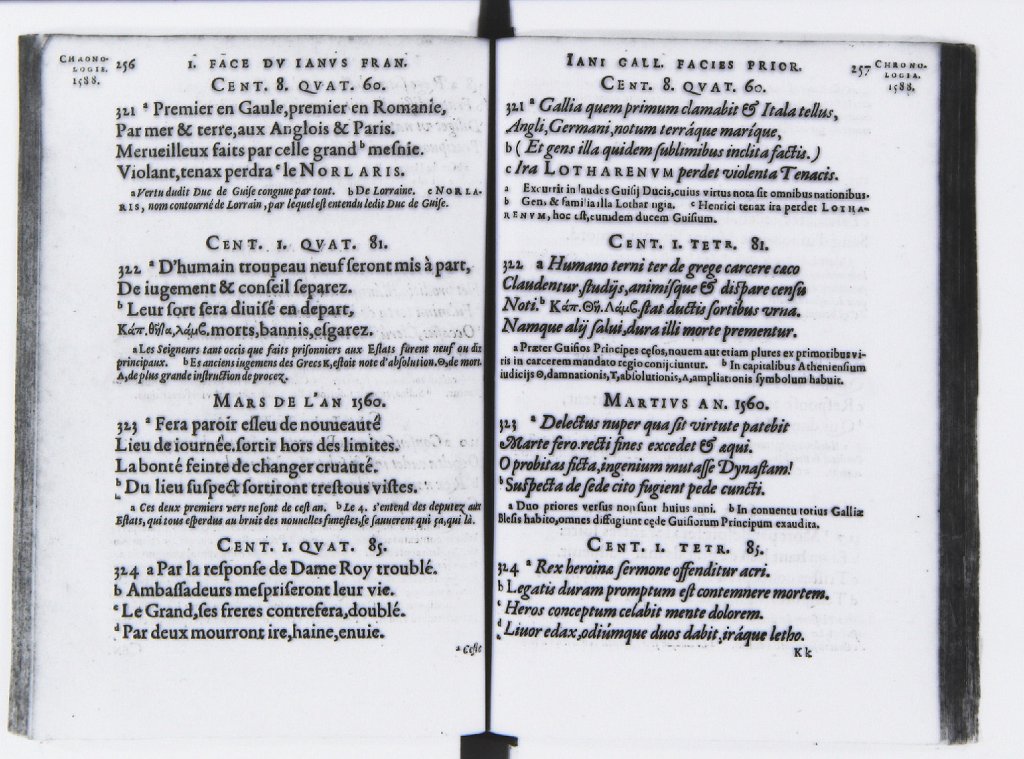 CHRONO-
LOGIE.
1588.
256 I. FACE DV IANVS FRAN.
CENT. 8. QVAT. 60.
321 a Premier en Gaule,premier en Romanie,
Par mer & terre,aux Anglois & Paris.
Merueilleux faits par celle grand b mesnie.
Violant,tenax perdra c le NORLARIS.
a Vertu dudit Duc de Guise congnue par tout. b De Lorraine. c NORLA-
RIS, nom contourné de Lorrain, par lequel est entendu ledit Duc de Guise.
CENT. I. QVAT. 81.
322 a D'humain troupeau neuf seront mis à part,
De iugement & conseil separez.
b Leur sort sera diuisé en depart,
Κάπ. θῆτα, λάμϐ. morts, bannis, esgarez.
a Les Seigneurs tant occis que faits prisonniers aux Estats furent neuf ou dix
principaux. b Es anciens iugemens des Grecs K, estoit note d'absolution. Θ, de mort
Λ, de plus grande instruction de procez.
MARS DE L'AN 1560.
323 a Fera paroir esleu de nouueauté
Lieu de iournée.sortir hors des limites.
La bonté feinte de changer cruauté.
b Du lieu suspect sortiront trestous vistes.
a Ces deux premiers vers ne sont de cest an. b Le 4. s'entend des deputez aux
Estats, qui tous esperdus au bruit des nouuelles funestes, se sauuerent qui ça, qui là.
CENT. I. QVAT. 85.
324 a Par la response de Dame Roy troublé.
b Ambassadeurs mespriseront leur vie.
c Le Grand, ses freres contrefera, doublé.
d Par deux mourront ire, haine, enuie.
a Ceste
IANI GALL. FACIES PRIOR. 257
CHRONO-
LOGIA.
1588.
CENT. 8. QVAT. 60.
321 a Gallia quem primum clamabit & Itala tellus,
Angli,Germani,notum terráque maríque,
b ( Et gens illa quidem sublimibus inclita factis. )
c Ira LOTHARENVM perdet violenta Tenacis.
a Excurrit in laudes Guisij Ducis, cuius virtus nota sit omnibus nationibus.
b Gens & familia illa Lotharingia. c Henrici tenax ira perdet LOTHA-
RENVM, hoc est, eumdem ducem Guisium.
CENT. I. TETR. 81.
322 a Humano terni ter de grege carcere cæco
Claudentur, studijs, animisque & dispare censu
Noti. b Κάπ. Θῆ. Λάμϐ. stat ductis sortibus vrna.
Namque alij salui, dura illi morte prementur.
a Præter Guisios Principes cęsos, nouem aut etiam plures ex primoribus vi-
ris in carcerem mandato regio conijciuntur. b In capitalibus Atheniensium
iudicijs Θ, damnationis, T, absolutionis, Λ, ampliationis symbolum habuit.
MARTIVS AN. 1560.
323 a Delectus nuper qua sit virtute patebit
Marte fero.recti fines excedet & æqui.
O probitas ficta, ingenium mutasse Dynastam!
b Suspecta de sede cito fugient pede cuncti.
a Duo priores versus non sunt huius anni. b In conuentu totius Galliæ
Blesis habito, omnes diffugiunt cęde Guisiorum Principum exaudita.
CENT. I. TETR. 85.
324 a Rex heroinæ sermone offenditur acri.
b Legatis duram promptum est contemnere mortem.
c Heros conceptum celabit mente dolorem.
d Liuor edax, odiúmque duos dabit, iráque letho.
Kk